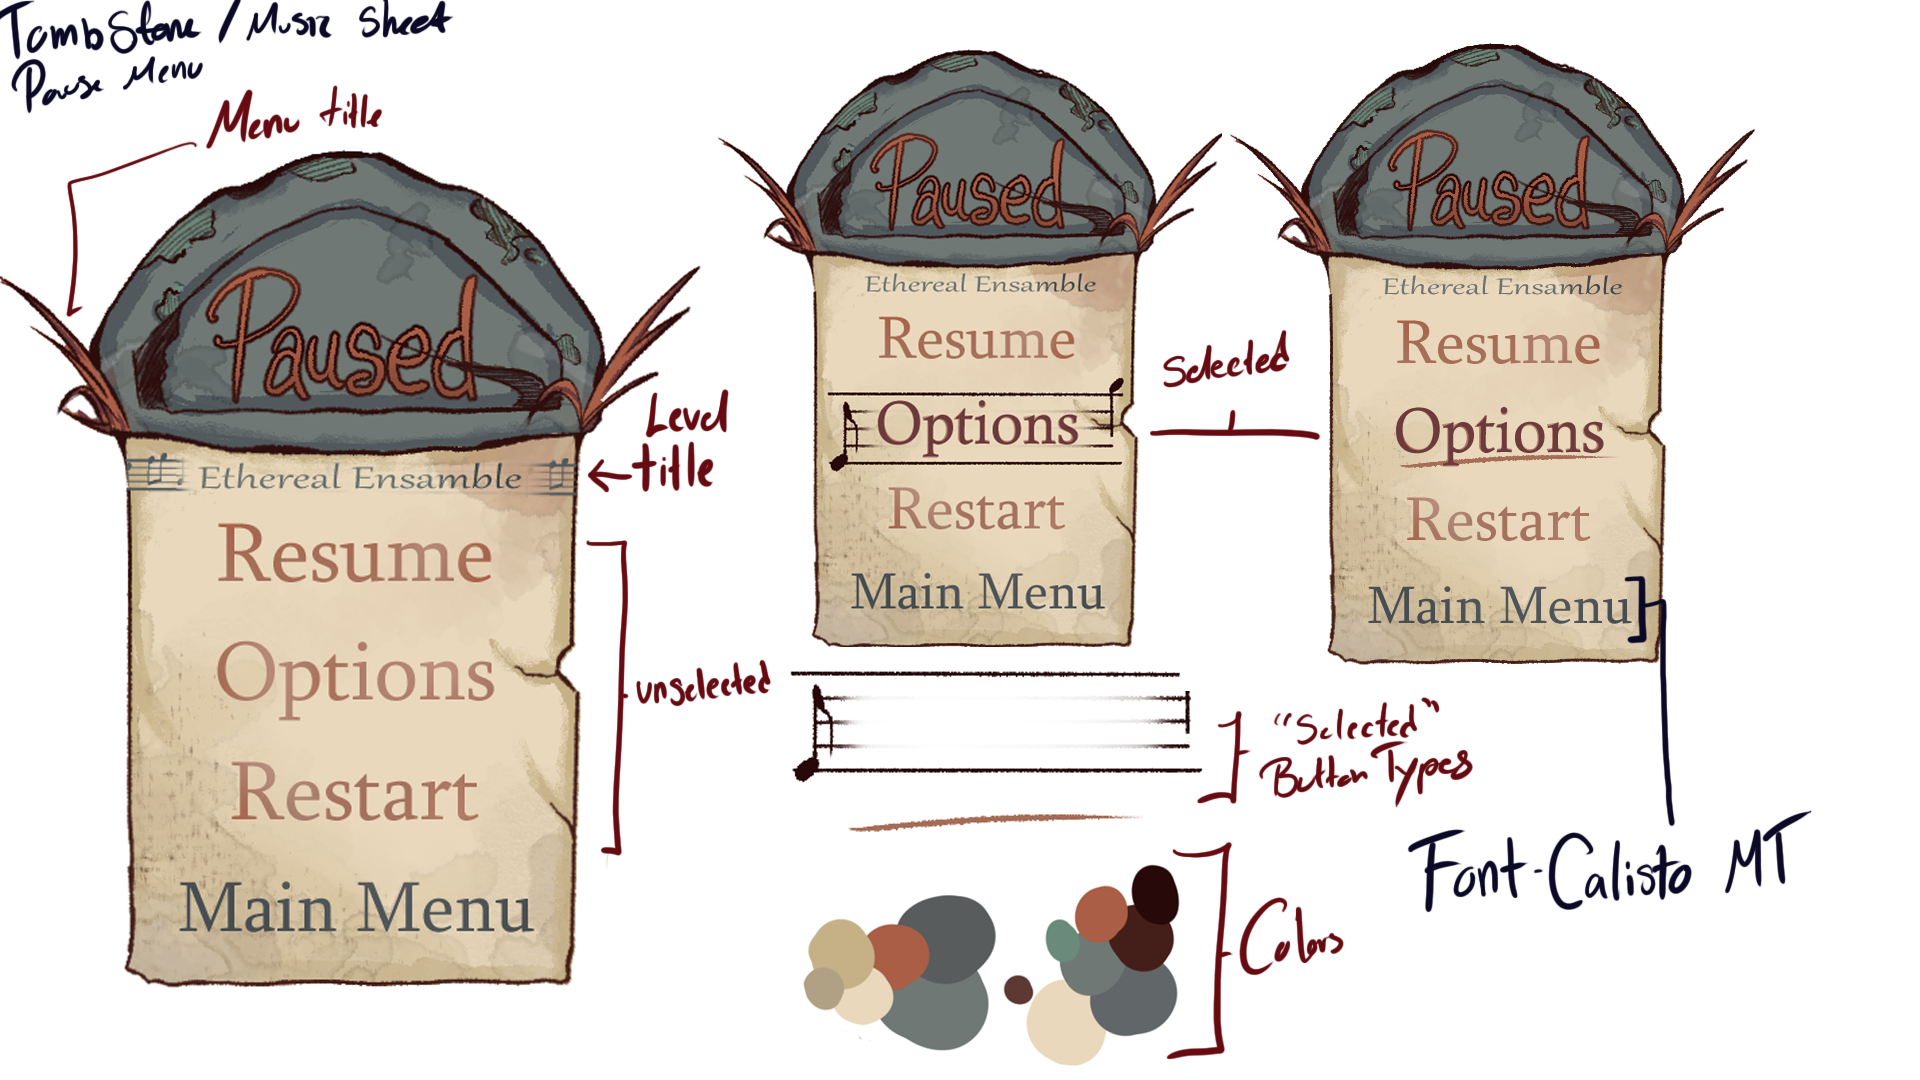 TombStone / Music Sheet
Pause Menu
Menu title
Paused
Level
title
Ethereal Ensamble
Resume
Options
Restart
Main Menu
unselected
Paused
Ethereal Ensamble
Resume
Options
Restart
Main Menu
Selected
Paused
Ethereal Ensamble
Resume
Options
Restart
Main Menu
"Selected"
Button Types
Font-Calisto MT
Colors